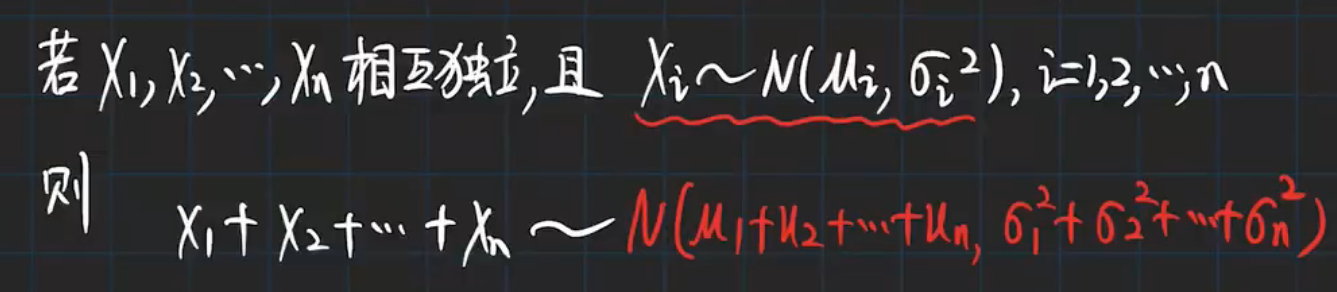 若 X₁, X₂, ⋯, Xₙ 相互独立, 且 Xᵢ ~ N(μᵢ, σᵢ²), i=1,2,⋯,n
则 X₁ + X₂ + ⋯ + Xₙ ~ N(μ₁+μ₂+⋯+μₙ, σ₁²+σ₂²+⋯+σₙ²)